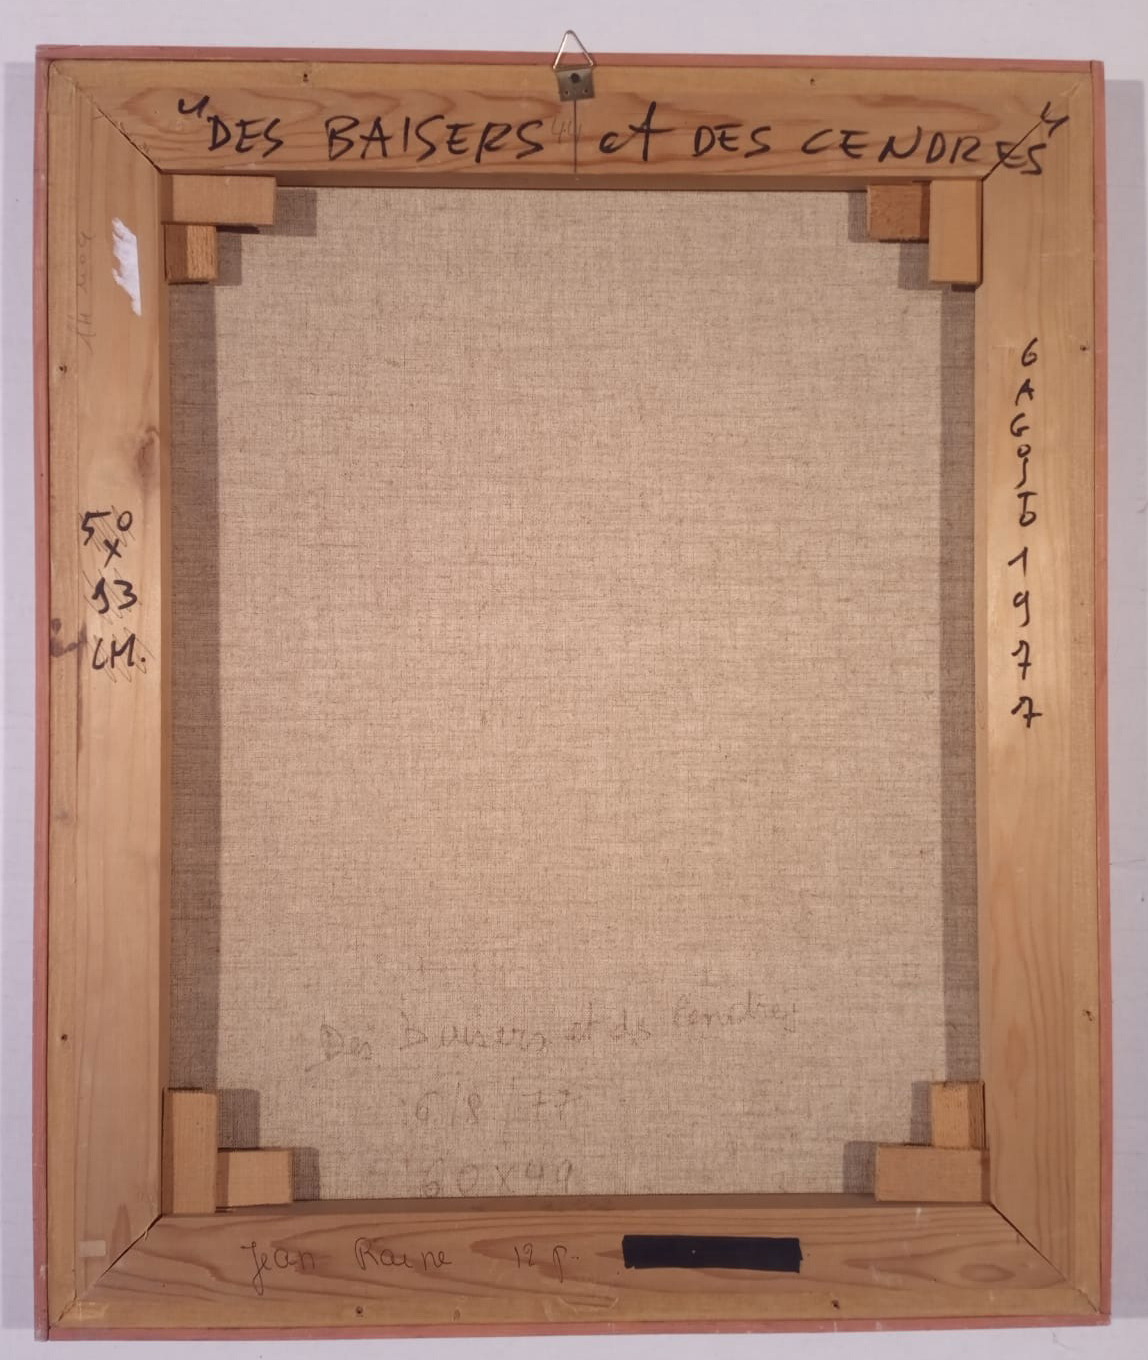 "DES BAISERS et DES CENDRES"
44
6 AGOSTO 1977
50 x 93 CM.
Des baisers et des Cendres
6/8 77
60X49
Jean Raine 12 p.